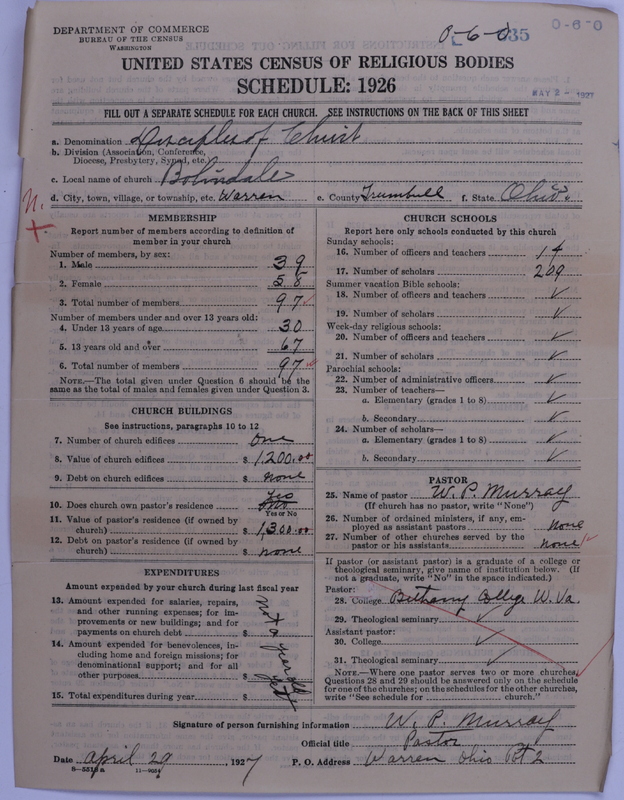 DEPARTMENT OF COMMERCE
BUREAU OF THE CENSUS
WASHINGTON
0-6-0
035
0-6-0
UNITED STATES CENSUS OF RELIGIOUS BODIES
SCHEDULE: 1926
MAY 2 - 1927
FILL OUT A SEPARATE SCHEDULE FOR EACH CHURCH. SEE INSTRUCTIONS ON THE BACK OF THIS SHEET
a. Denomination Disciples of Christ
b. Division (Association, Conference, Diocese, Presbytery, Synod, etc.)
c. Local name of church Bolindale
d. City, town, village, or township, etc. Warren e. County Trumbull f. State Ohio.
MEMBERSHIP
Report number of members according to definition of
member in your church
Number of members, by sex:
1. Male 39
2. Female 58
3. Total number of members 97
Number of members under and over 13 years old:
4. Under 13 years of age 30
5. 13 years old and over 67
6. Total number of members 97
NOTE.—The total given under Question 6 should be the
same as the total of males and females given under Question 3.
CHURCH BUILDINGS
See instructions, paragraphs 10 to 12
7. Number of church edifices one
8. Value of church edifices $ 1,200.00
9. Debt on church edifices $ none
10. Does church own pastor's residence Yes
Yes or No
11. Value of pastor's residence (if owned by
church) $ 1,300.00
12. Debt on pastor's residence (if owned by
church) $ none
EXPENDITURES
Amount expended by your church during last fiscal year
13. Amount expended for salaries, repairs,
and other running expenses; for im-
provements or new buildings; and for
payments on church debt $
14. Amount expended for benevolences, in-
cluding home and foreign missions; for
denominational support; and for all
other purposes $
15. Total expenditures during year $
not a year old yet
CHURCH SCHOOLS
Report here only schools conducted by this church
Sunday schools:
16. Number of officers and teachers 14
17. Number of scholars 209
Summer vacation Bible schools:
18. Number of officers and teachers ✓
19. Number of scholars ✓
Week-day religious schools:
20. Number of officers and teachers ✓
21. Number of scholars ✓
Parochial schools:
22. Number of administrative officers ✓
23. Number of teachers—
a. Elementary (grades 1 to 8) ✓
b. Secondary ✓
24. Number of scholars—
a. Elementary (grades 1 to 8) ✓
b. Secondary ✓
PASTOR
25. Name of pastor W. P. Murray
(If church has no pastor, write "None")
26. Number of ordained ministers, if any, em-
ployed as assistant pastors none
27. Number of other churches served by the
pastor or his assistants none
If pastor (or assistant pastor) is a graduate of a college or
theological seminary, give name of institution below. (If
not a graduate, write "No" in the space indicated.)
Pastor:
28. College Bethany College W. Va.
29. Theological seminary ✓
Assistant pastor:
30. College ✓
31. Theological seminary ✓
NOTE.—Where one pastor serves two or more churches,
Questions 28 and 29 should be answered only on the schedule
for one of the churches; on the schedules for the other churches,
write "See schedule for church."
Signature of person furnishing information W. P. Murray
Official title Pastor
Date April 29, 1927 P. O. Address Warren Ohio Rt 2
8-551a 11-9051